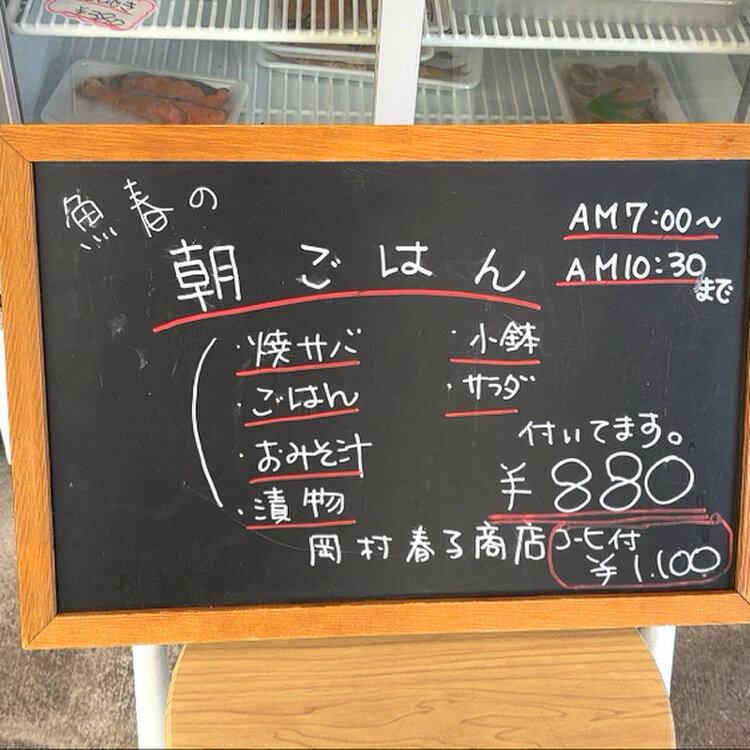 魚春の
朝ごはん
AM7:00〜
AM10:30
まで
・焼サバ
・ごはん
・おみそ汁
・漬物
・小鉢
・サラダ
付いてます。
¥880
岡村春子商店
コーヒー付
¥1.100